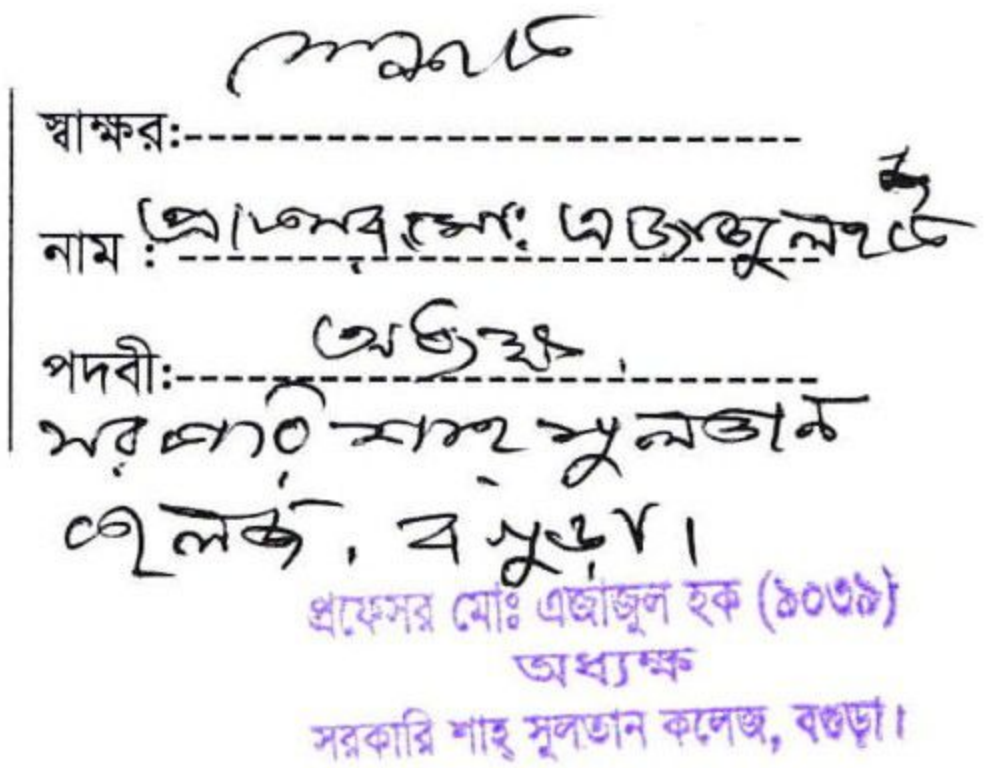 স্বাক্ষর:
নাম : প্রফেসর মোঃ এজাজুল হক
পদবী: অধ্যক্ষ
সরকারি শাহ্ সুলতান
কলেজ, বগুড়া।
প্রফেসর মোঃ এজাজুল হক (৯০৩৯)
অধ্যক্ষ
সরকারি শাহ্ সুলতান কলেজ, বগুড়া।